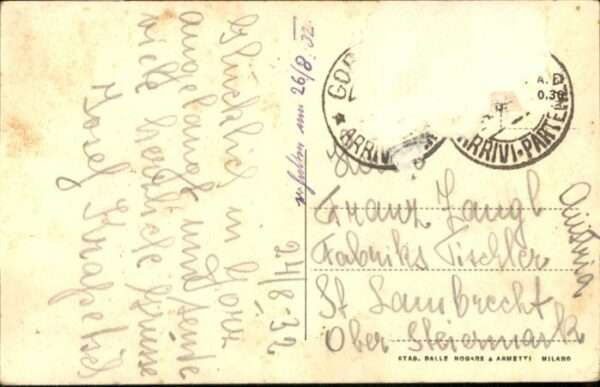 Glücklich in Görz
angelangt und sende
viele herzliche Grüsse
Josef
24/8 32
erhalten am 26/8. 32.
ARRIVI
ARRIVI-PARTENZ
0.30
Franz Zangl
Fabriks Tischler
St Lambrecht
Ober Steiermark
Austria
STAB. DALLE NOGARE & ARMETTI MILANO